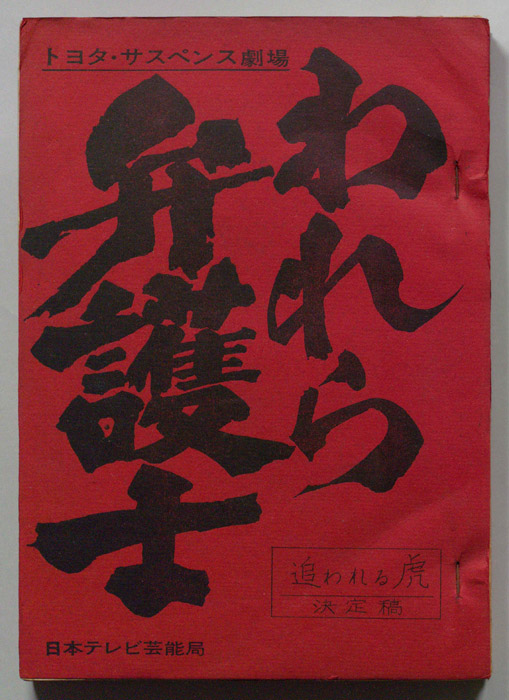 トヨタ・サスペンス劇場
われら
弁護士
追われる虎
決定稿
日本テレビ芸能局